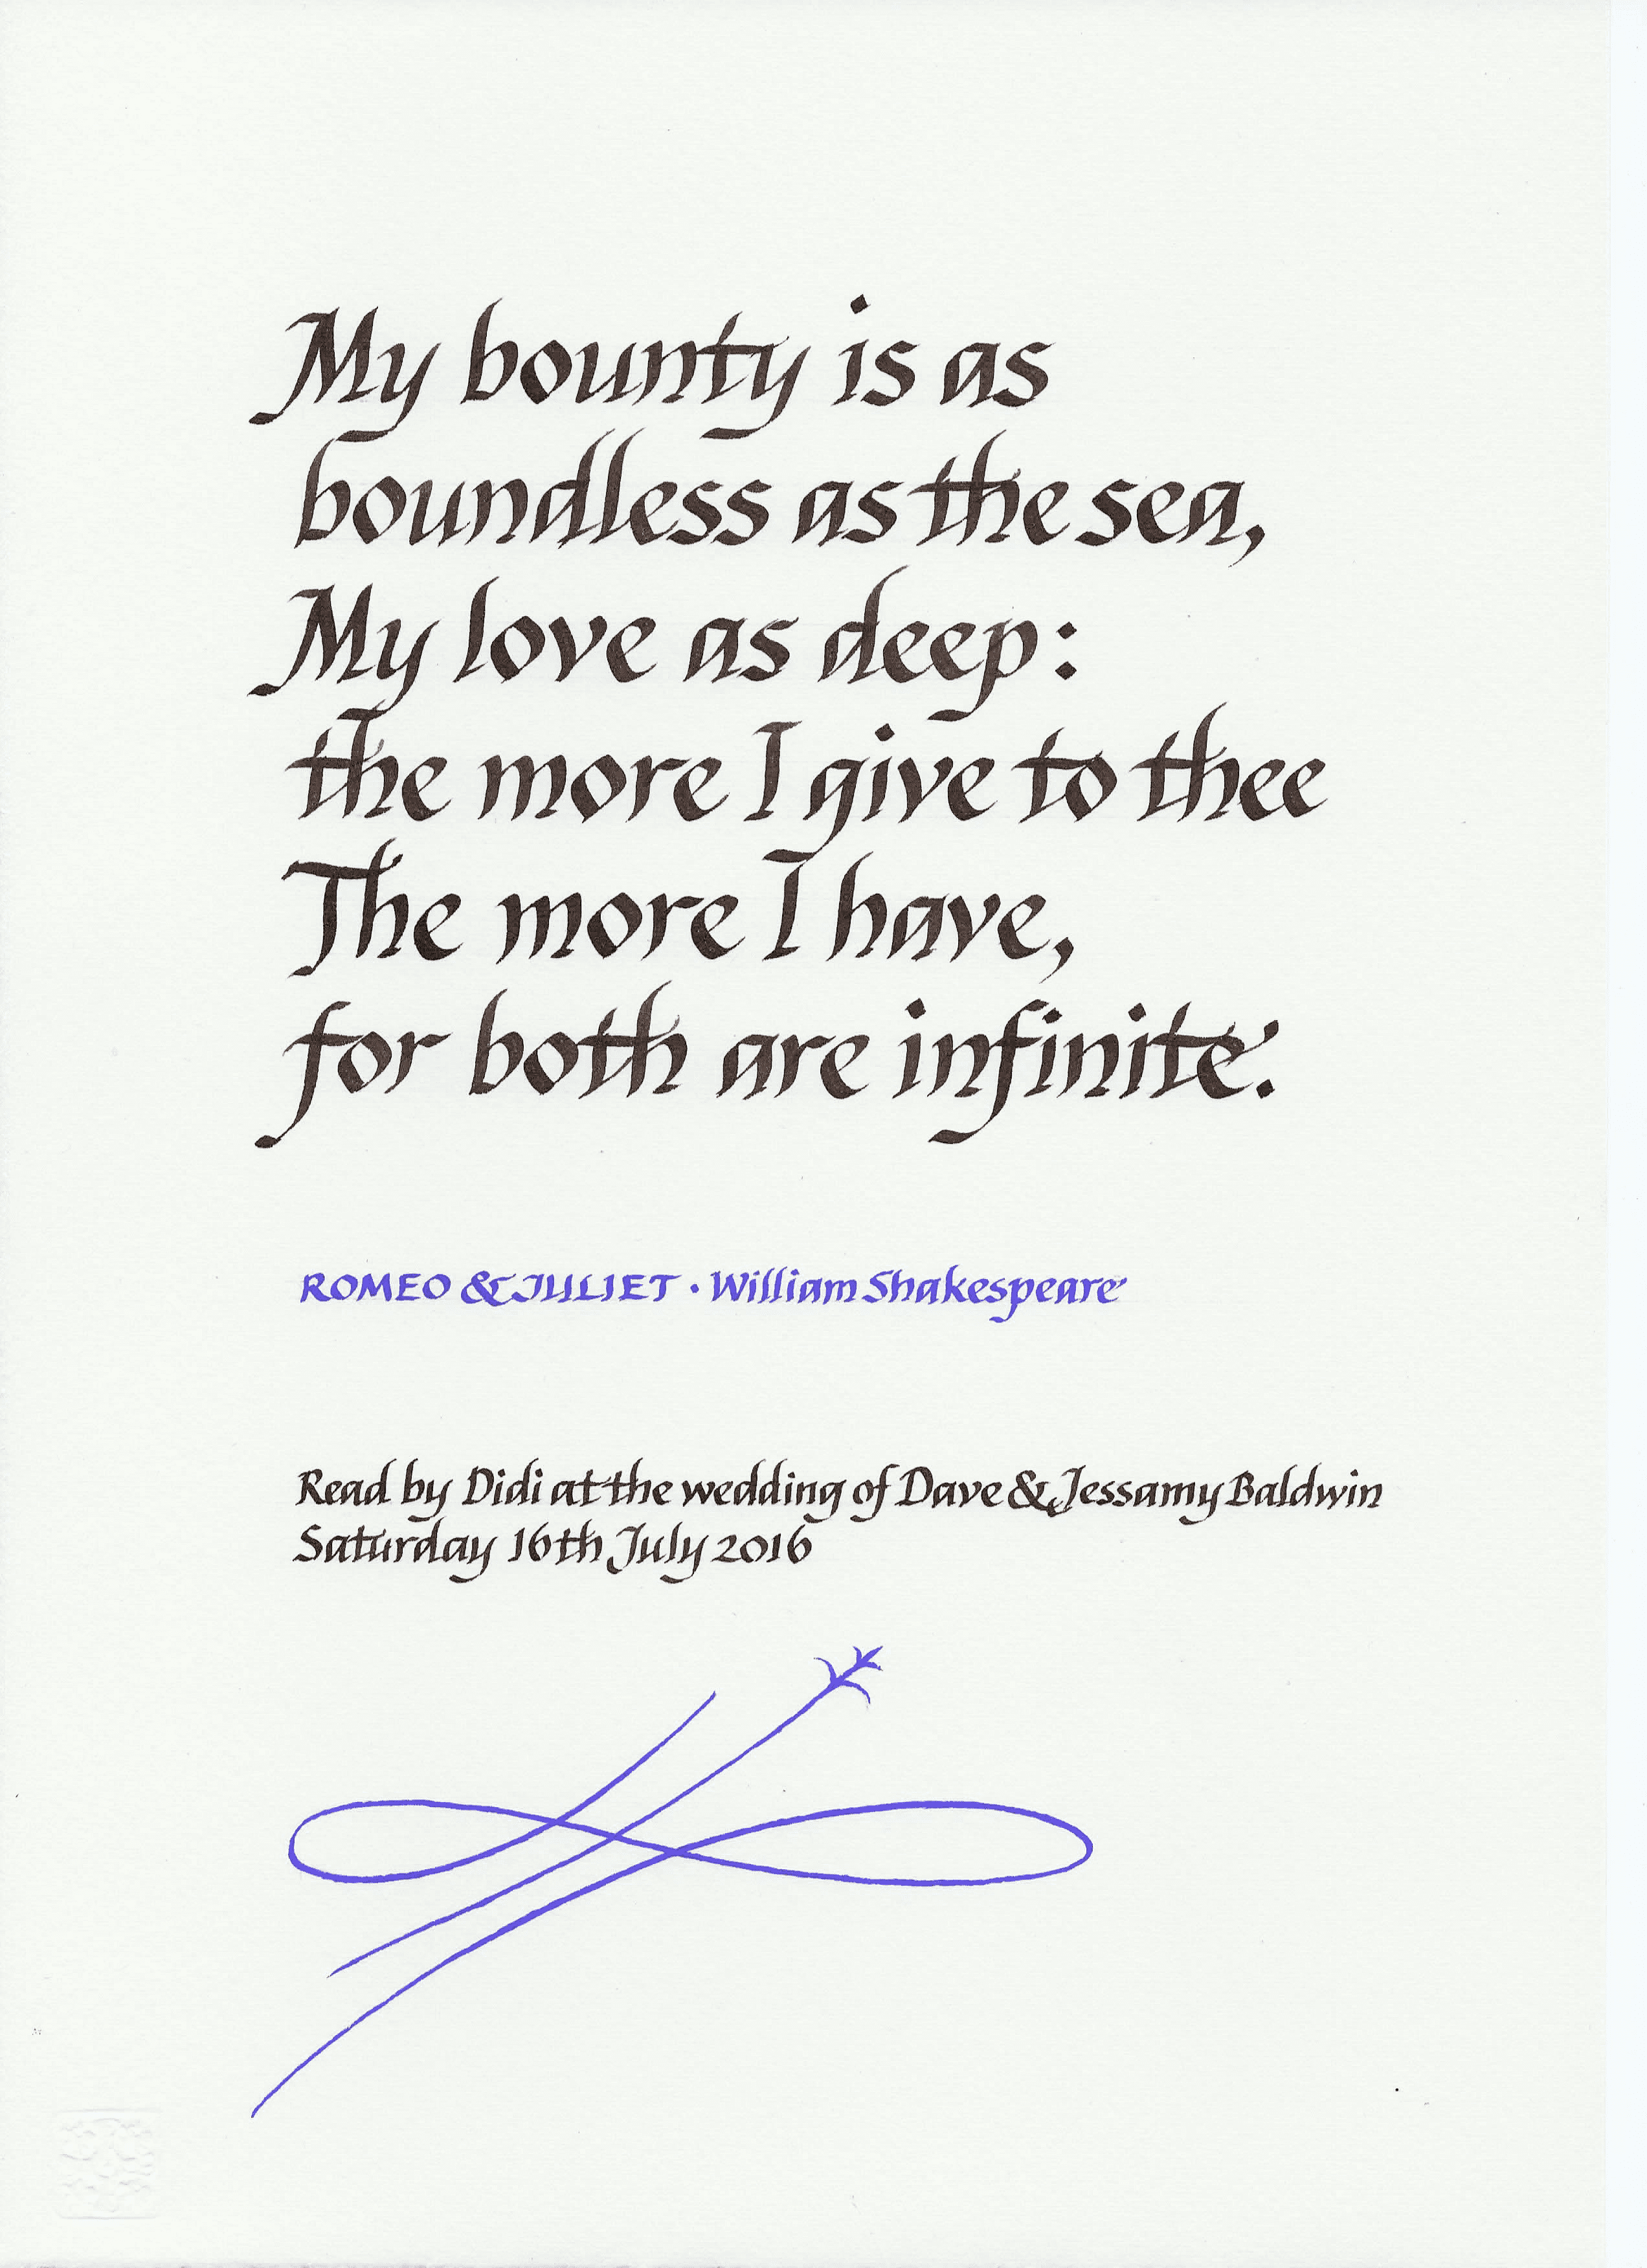 My bounty is as
boundless as the sea,
My love as deep:
the more I give to thee
The more I have,
for both are infinite.
ROMEO & JULIET · William Shakespeare
Read by Didi at the wedding of Dave & Jessamy Baldwin
Saturday 16th July 2016